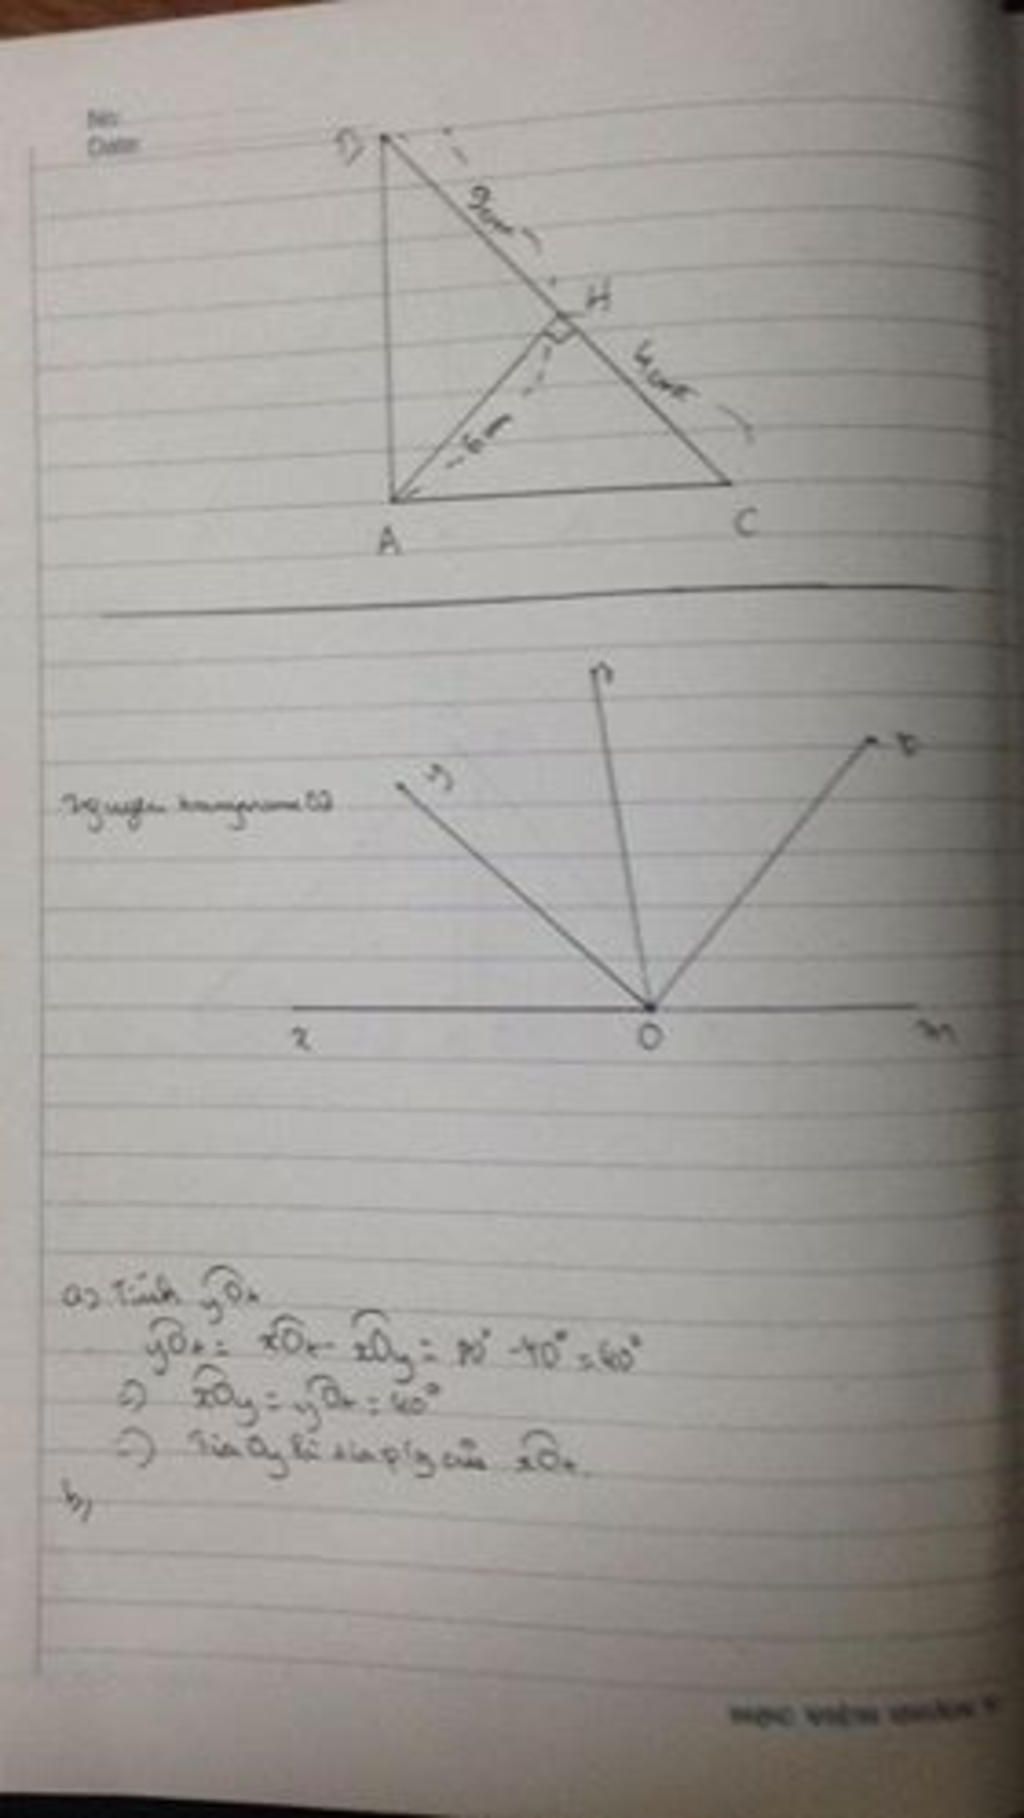 No:
Date:
9cm
H
4cm
6cm
A
C
y
O
m
a) Tính yOt
yOt = xOt - xOy = 80° - 40° = 40°
=) xOy = yOt = 40°
=) Tia Oy là tia p/g của xOt.
b)